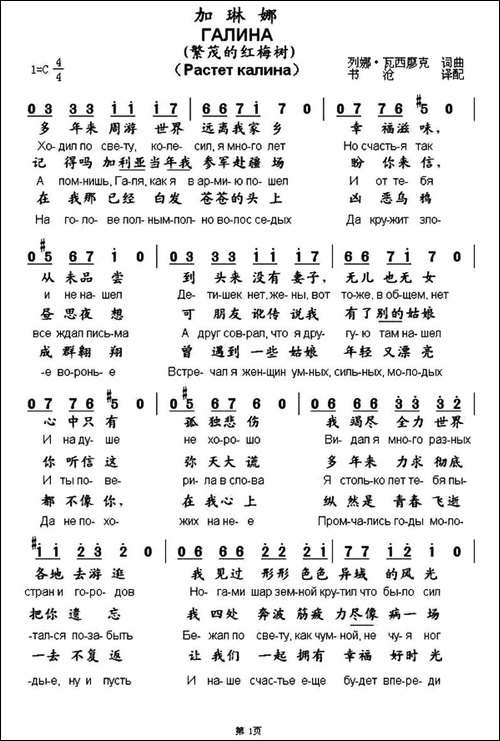 加琳娜
ГАЛИНА
(繁茂的红梅树)
(Растет калина)
1=C 4/4
列娜·瓦西廖克 词曲
书 沧 译配
0 3 3 3 i i i 7 | 6 6 7 i 7 0 | 0 7 7 6 #5 0 |
多 年来 周游 世界 远离我家 乡 幸 福滋味,
Хо- дил по све-ту, ко-ле- сил, я мно-го лет Но счасть-я так
记 得吗 加利亚当年我 参军赴疆 场 盼 你来 信,
А пом-нишь, Га-ля, как я в ар-ми-ю по-шел И от те-бя
在 我那 已经 白发 苍苍的头 上 凶 恶乌 鸦
На го-ло- ве пол-ным-пол- но во-лос се-дых Да кру-жит зло-
0 #5 6 7 i 0 | 0 3 3 3 i i i 7 | 6 6 7 i 7 0 |
从 未品 尝 到 头来 没有 妻子, 无儿 也无 女
и не на- шел Де-ти-шек нет, же-ны, вот то-же, в об-щем, нет
昼 思夜 想 可 朋友 讹传 说我 有了 别的 姑娘
все ждал пись-ма А друг сов-рал, что я дру- гу-ю там на-шел
成 群翱 翔 曾 遇到 一些 姑娘 年轻 又漂 亮
-е во-ронь- е Встре-чал я жен-щин ум-ных, силь-ных, мо-ло-дых
0 7 7 6 #5 0 | 0 #5 6 7 6 0 | 0 6 6 6 3 3 3 2 |
心 中只 有 孤 独悲 伤 我 竭尽 全力 世界
И на ду- ше не хо-ро- шо Ви- дал я мно-го раз-ных
你 听信 这 弥 天大 谎 多 年来 力求 彻底
И ты по-ве- ри-ла в сло-ва Я столь-ко лет те-бя пы-
都 不像 你, 在 我心 上 纵 然是 青春 飞逝
Да не по-хо- жих на не- е Пром-ча-лись го-ды мо-ло-
#i i 2 3 2 0 | 0 6 6 6 2 2 2 i | 7 7 i 2 i 0 |
各地 去游 逛 我 见过 形形 色色 异域 的风 光
стран и го-ро- дов Но-га-ми шар зем-ной кру-тил что бы-ло сил
把你 遗 忘 我 四处 奔波 筋疲 力尽像 病一 场
-тал-ся по-за-быть Бе- жал по све-ту, как чум-ной, не чу-я ног
一去 不复 返 让 我们 一起 拥有 幸福 好时 光
-ды-е, ну и пусть И на-ше счас-тье е-ще бу-дет впе-ре-ди
第 1页